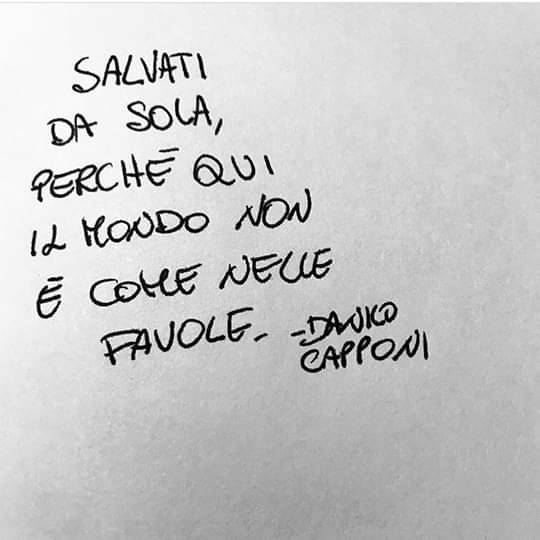 SALVATI
DA SOLA,
PERCHÉ QUI
IL MONDO NON
È COME NELLE
FAVOLE.
-DANKO
CAPPONI